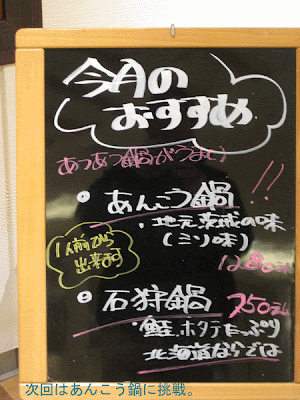 今月の
おすすめ
あつあつ鍋がうまい!!
・あんこう鍋
・地元茨城の味
(ミソ味)
1人前から
出来ます
・石狩鍋 750
・鮭、ホタテたっぷり
北海道ならでは
次回はあんこう鍋に挑戦。